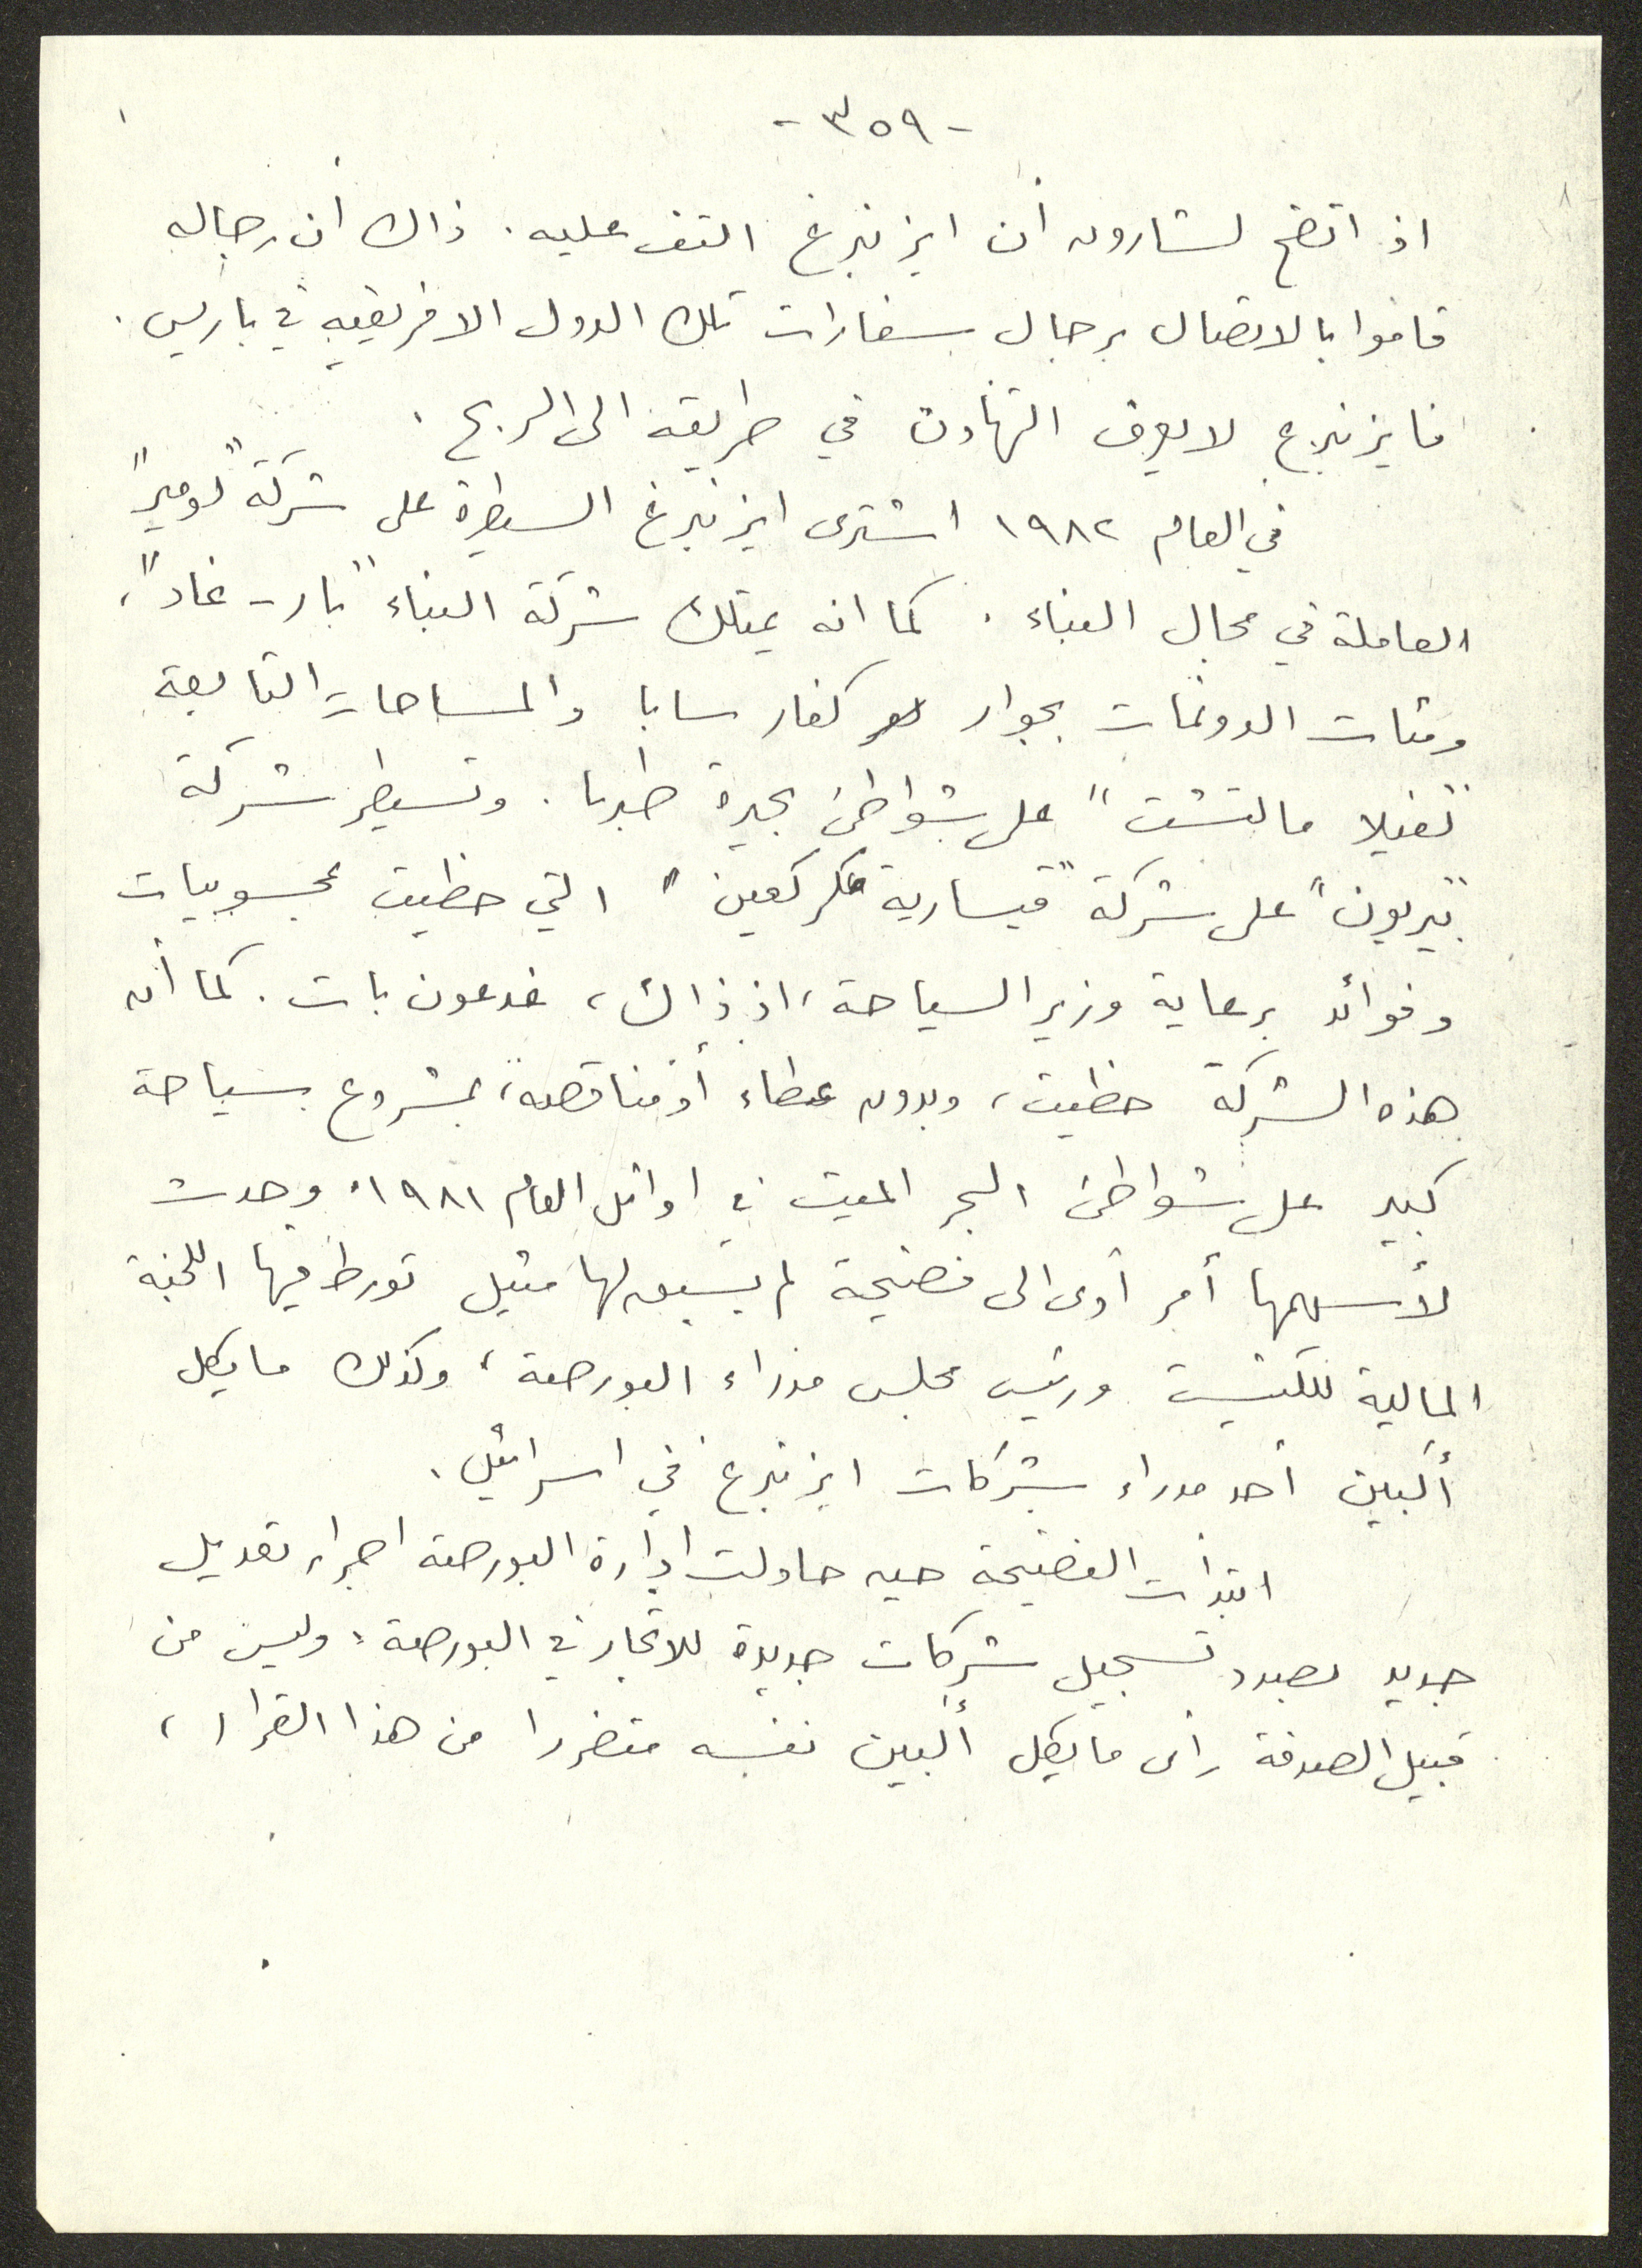 - ٣٥٩ -
اذ اتضح لشارون أن ايزنبرغ التف عليه. ذلك أن رجاله
قاموا بالاتصال برجال سفارات تلك الدول الافريقية في باريس.
فايزنبرغ لا يعرف التهاون في طريقه الى الربح.
في العام ١٩٨٢ اشترى ايزنبرغ السيطرة على شركة "لومير"
العاملة في مجال البناء. كما انه يمتلك شركة البناء "بار - غاد"،
ومئات الدونمات بجوار كفار سابا والمساحات التابعة
"لفيلا مالتشت" على شواطئ بحيرة طبريا. وتسيطر شركة
على شركة "قيسارية" التي حظيت بمحسوبيات
وفوائد برعاية وزير السياحة، اذ ذاك، غدعون بات. كما أن
هذه الشركة حظيت، وبدون عطاء أو مناقصة، بمشروع سياحة
كبير على شواطئ البحر الميت في اوائل العام ١٩٨١. وحدث
لأسهمها أمر أدى الى فضيحة لم يسبق لها مثيل تورط فيها اللجنة
المالية للكنيست ورئيس مجلس مدراء البورصة، وكذلك مايكل
ألبين أحد مدراء شركات ايزنبرغ في اسرائيل.
ابتدأت الفضيحة حين حاولت ادارة البورصة اجراء تعديل
جديد بصدد تسجيل شركات جديدة للاتجار في البورصة. وليس من
قبيل الصدفة رأى مايكل ألبين نفسه متضررا من هذا القرار،